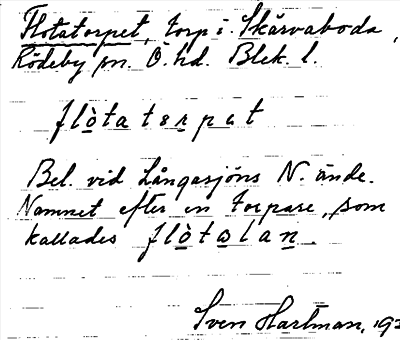 Flotatorpet, torp i Skärvaboda,
Rödeby sn. Ö. hd. Blek. l.
flòtatɛrpat
Bel. vid Långasjöns N. ände.
Namnet efter en torpare, som
kallades flòtalan.
Sven Hartman, 192